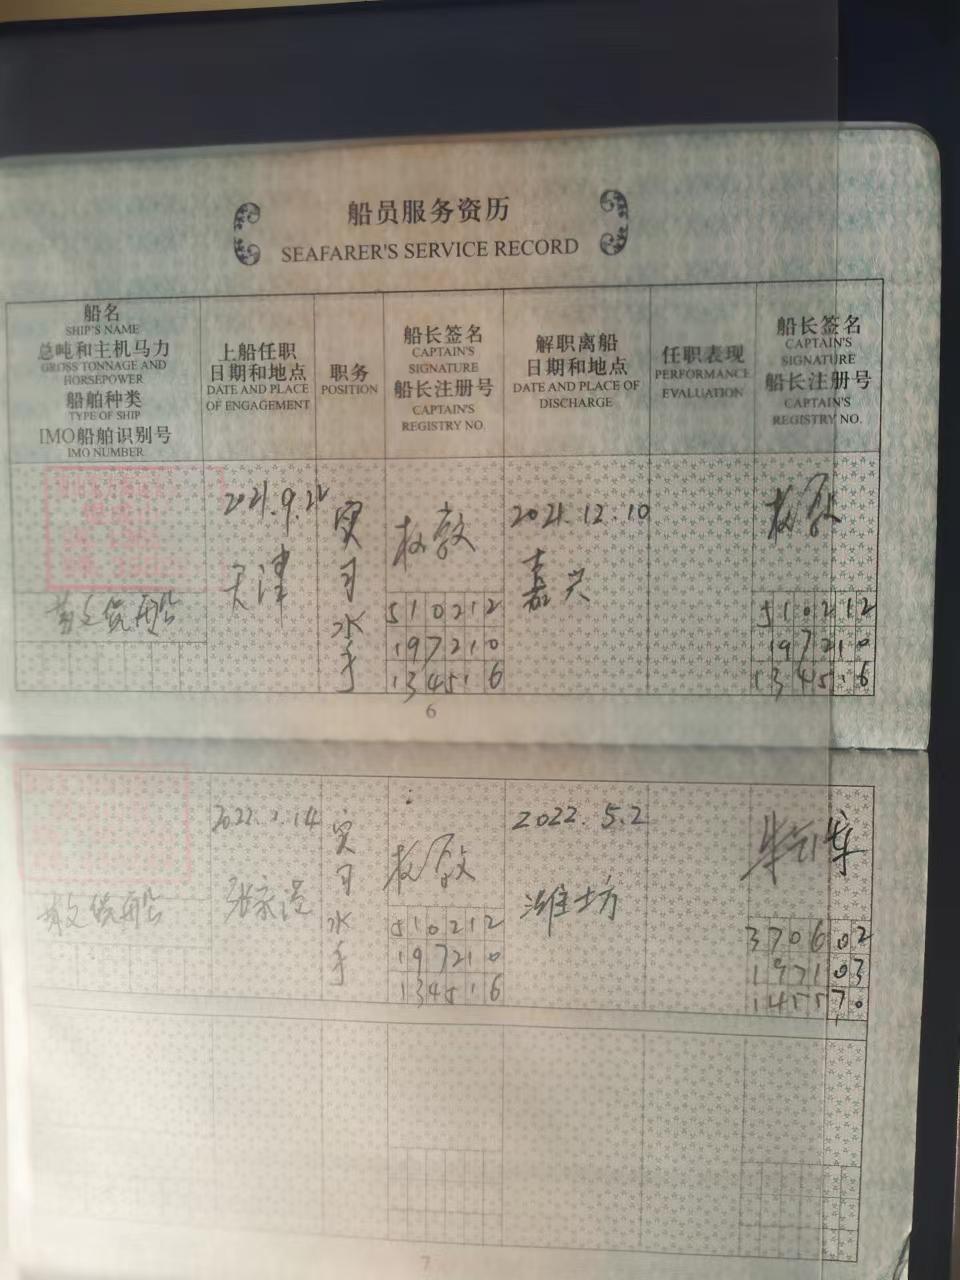 船员服务资历
SEAFARER'S SERVICE RECORD
船名
SHIP'S NAME
总吨和主机马力
GROSS TONNAGE AND
HORSEPOWER
船舶种类
TYPE OF SHIP
IMO船舶识别号
IMO NUMBER
上船任职
日期和地点
DATE AND PLACE
OF ENGAGEMENT
职务
POSITION
船长签名
CAPTAIN'S
SIGNATURE
船长注册号
CAPTAIN'S
REGISTRY NO.
解职离船
日期和地点
DATE AND PLACE OF
DISCHARGE
任职表现
PERFORMANCE
EVALUATION
船长签名
CAPTAIN'S
SIGNATURE
船长注册号
CAPTAIN'S
REGISTRY NO.
散货船
2021.9.22
天津
实
习
水
手
510212
197210
134516
2021.12.10
嘉兴
510212
197210
134516
6
散货船
张家港
实
习
水
手
510212
197210
134516
2022.5.2
潍坊
370602
197103
145570
7